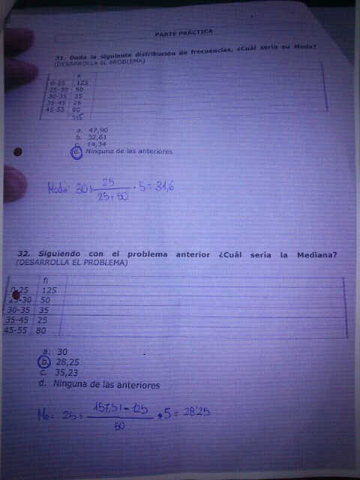 PARTE PRÁCTICA
31. Dada la siguiente distribución de frecuencias, ¿Cuál sería su Moda?
(DESARROLLA EL PROBLEMA)
0-25 125
25-30 50
30-35 35
35-45 25
45-55 80
315
a. 47,90
b. 32,61
c. 14,34
d. Ninguna de las anteriores
25
25+50
· 5 = 31,6
32. Siguiendo con el problema anterior ¿Cuál sería la Mediana?
(DESARROLLA EL PROBLEMA)
fi
0-25 125
25-30 50
30-35 35
35-45 25
45-55 80
a. 30
b. 28,25
c. 35,23
d. Ninguna de las anteriores
Me= 25+ 157,5-125 · 5 = 28,25
50